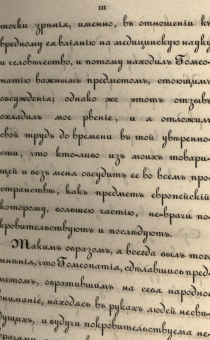 III
точки зрѣнія, именно, въ отношеніи къ
вредному ея вліянію на медицинскую науку
и человѣчество, и потому находилъ Гомео-
патію важнымъ предметомъ, стоющимъ
обсужденія; однако же этотъ отзывъ
охладилъ мое рвеніе, и я отложилъ
свой трудъ до времени въ той увѣренно-
сти, что кто-либо изъ моихъ товари-
щей и безъ меня обсудитъ ее во всемъ про-
странствѣ, какъ предметъ европейскій
которому, большею частію, не-врачи по-
кровительствуютъ и послѣдуютъ.
Такимъ образомъ, я всегда былъ того
мнѣнія, что Гомеопатія, сдѣлавшись пред-
метомъ, обратившимъ на себя народное
вниманіе, находясь въ рукахъ людей несвѣ-
дущихъ, и будучи покровительствуема не-
врачами